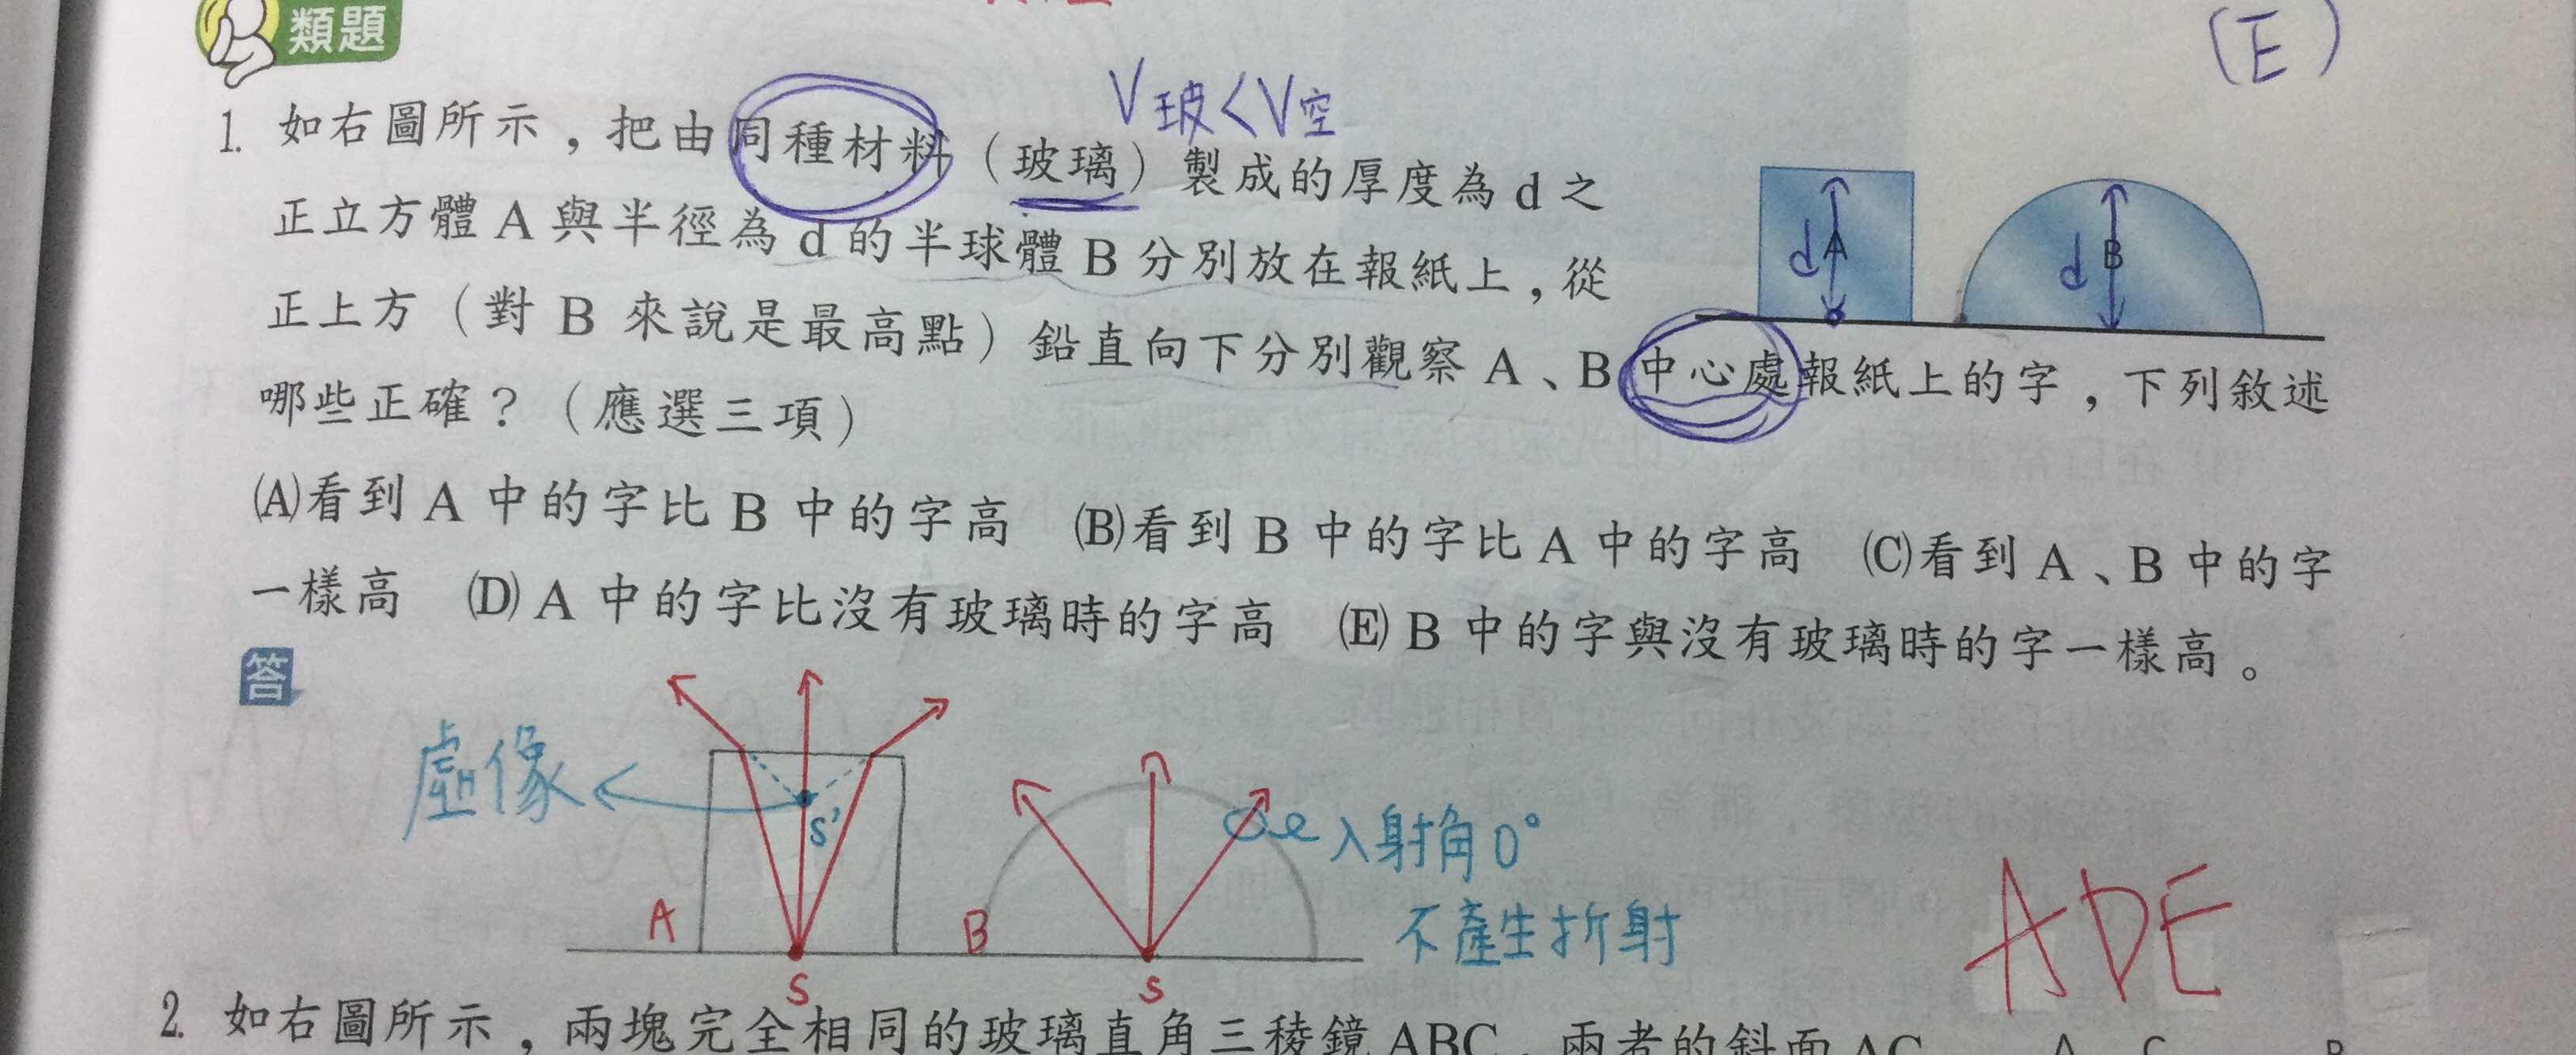 類題
(E)
V玻<V空
1. 如右圖所示，把由同種材料（玻璃）製成的厚度為 d 之
正立方體 A 與半徑為 d 的半球體 B 分別放在報紙上，從
正上方（對 B 來說是最高點）鉛直向下分別觀察 A、B 中心處報紙上的字，下列敘述
哪些正確？（應選三項）
d A
d B
(A)看到 A 中的字比 B 中的字高 (B)看到 B 中的字比 A 中的字高 (C)看到 A、B 中的字
一樣高 (D) A 中的字比沒有玻璃時的字高 (E) B 中的字與沒有玻璃時的字一樣高。
答
虛像
S'
入射角0°
不產生折射
A
B
S
S
ADE
2. 如右圖所示，兩塊完全相同的玻璃直角三稜鏡 ABC，兩者的斜面 AC
A C B